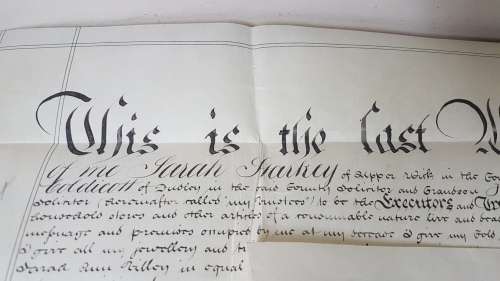 This is the last W
of me Sarah Starkey of Upper Wick in the Co
Caldicott of Dudley in the said County Solicitor and
Solicitor (hereinafter called "my Trustees") to be the Executors and Tr
household stores and other articles of a consumable nature live and dead
messuage and premises occupied by me at my decease I give my Gold
I give all my jewellery and tr
Sarah Ann Willey in equal